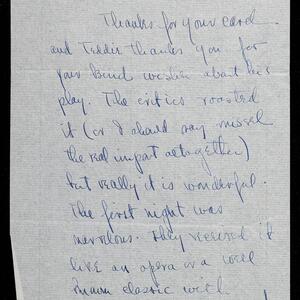 Thanks for your card
and Teddie thanks you for
your kind wishes about his
play. The critics roasted
it (or I should say missed
the real import altogether)
but really it is wonderful.
The first night was
marvelous. They received it
like an opera or a well
known classic with